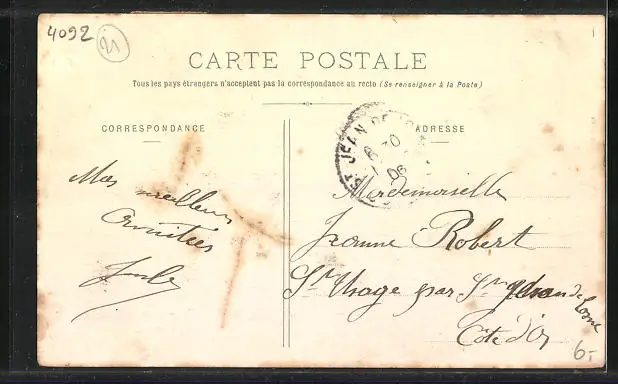 4092
21
CARTE POSTALE
Tous les pays étrangers n'acceptent pas la correspondance au recto (Se renseigner à la Poste)
CORRESPONDANCE
ADRESSE
ST JEAN DE
6 30
06
Mes meilleurs
Amitiés
Mademoiselle
Jeanne Robert
St Usage par St Jean de Losne
Côte d'Or
6.-